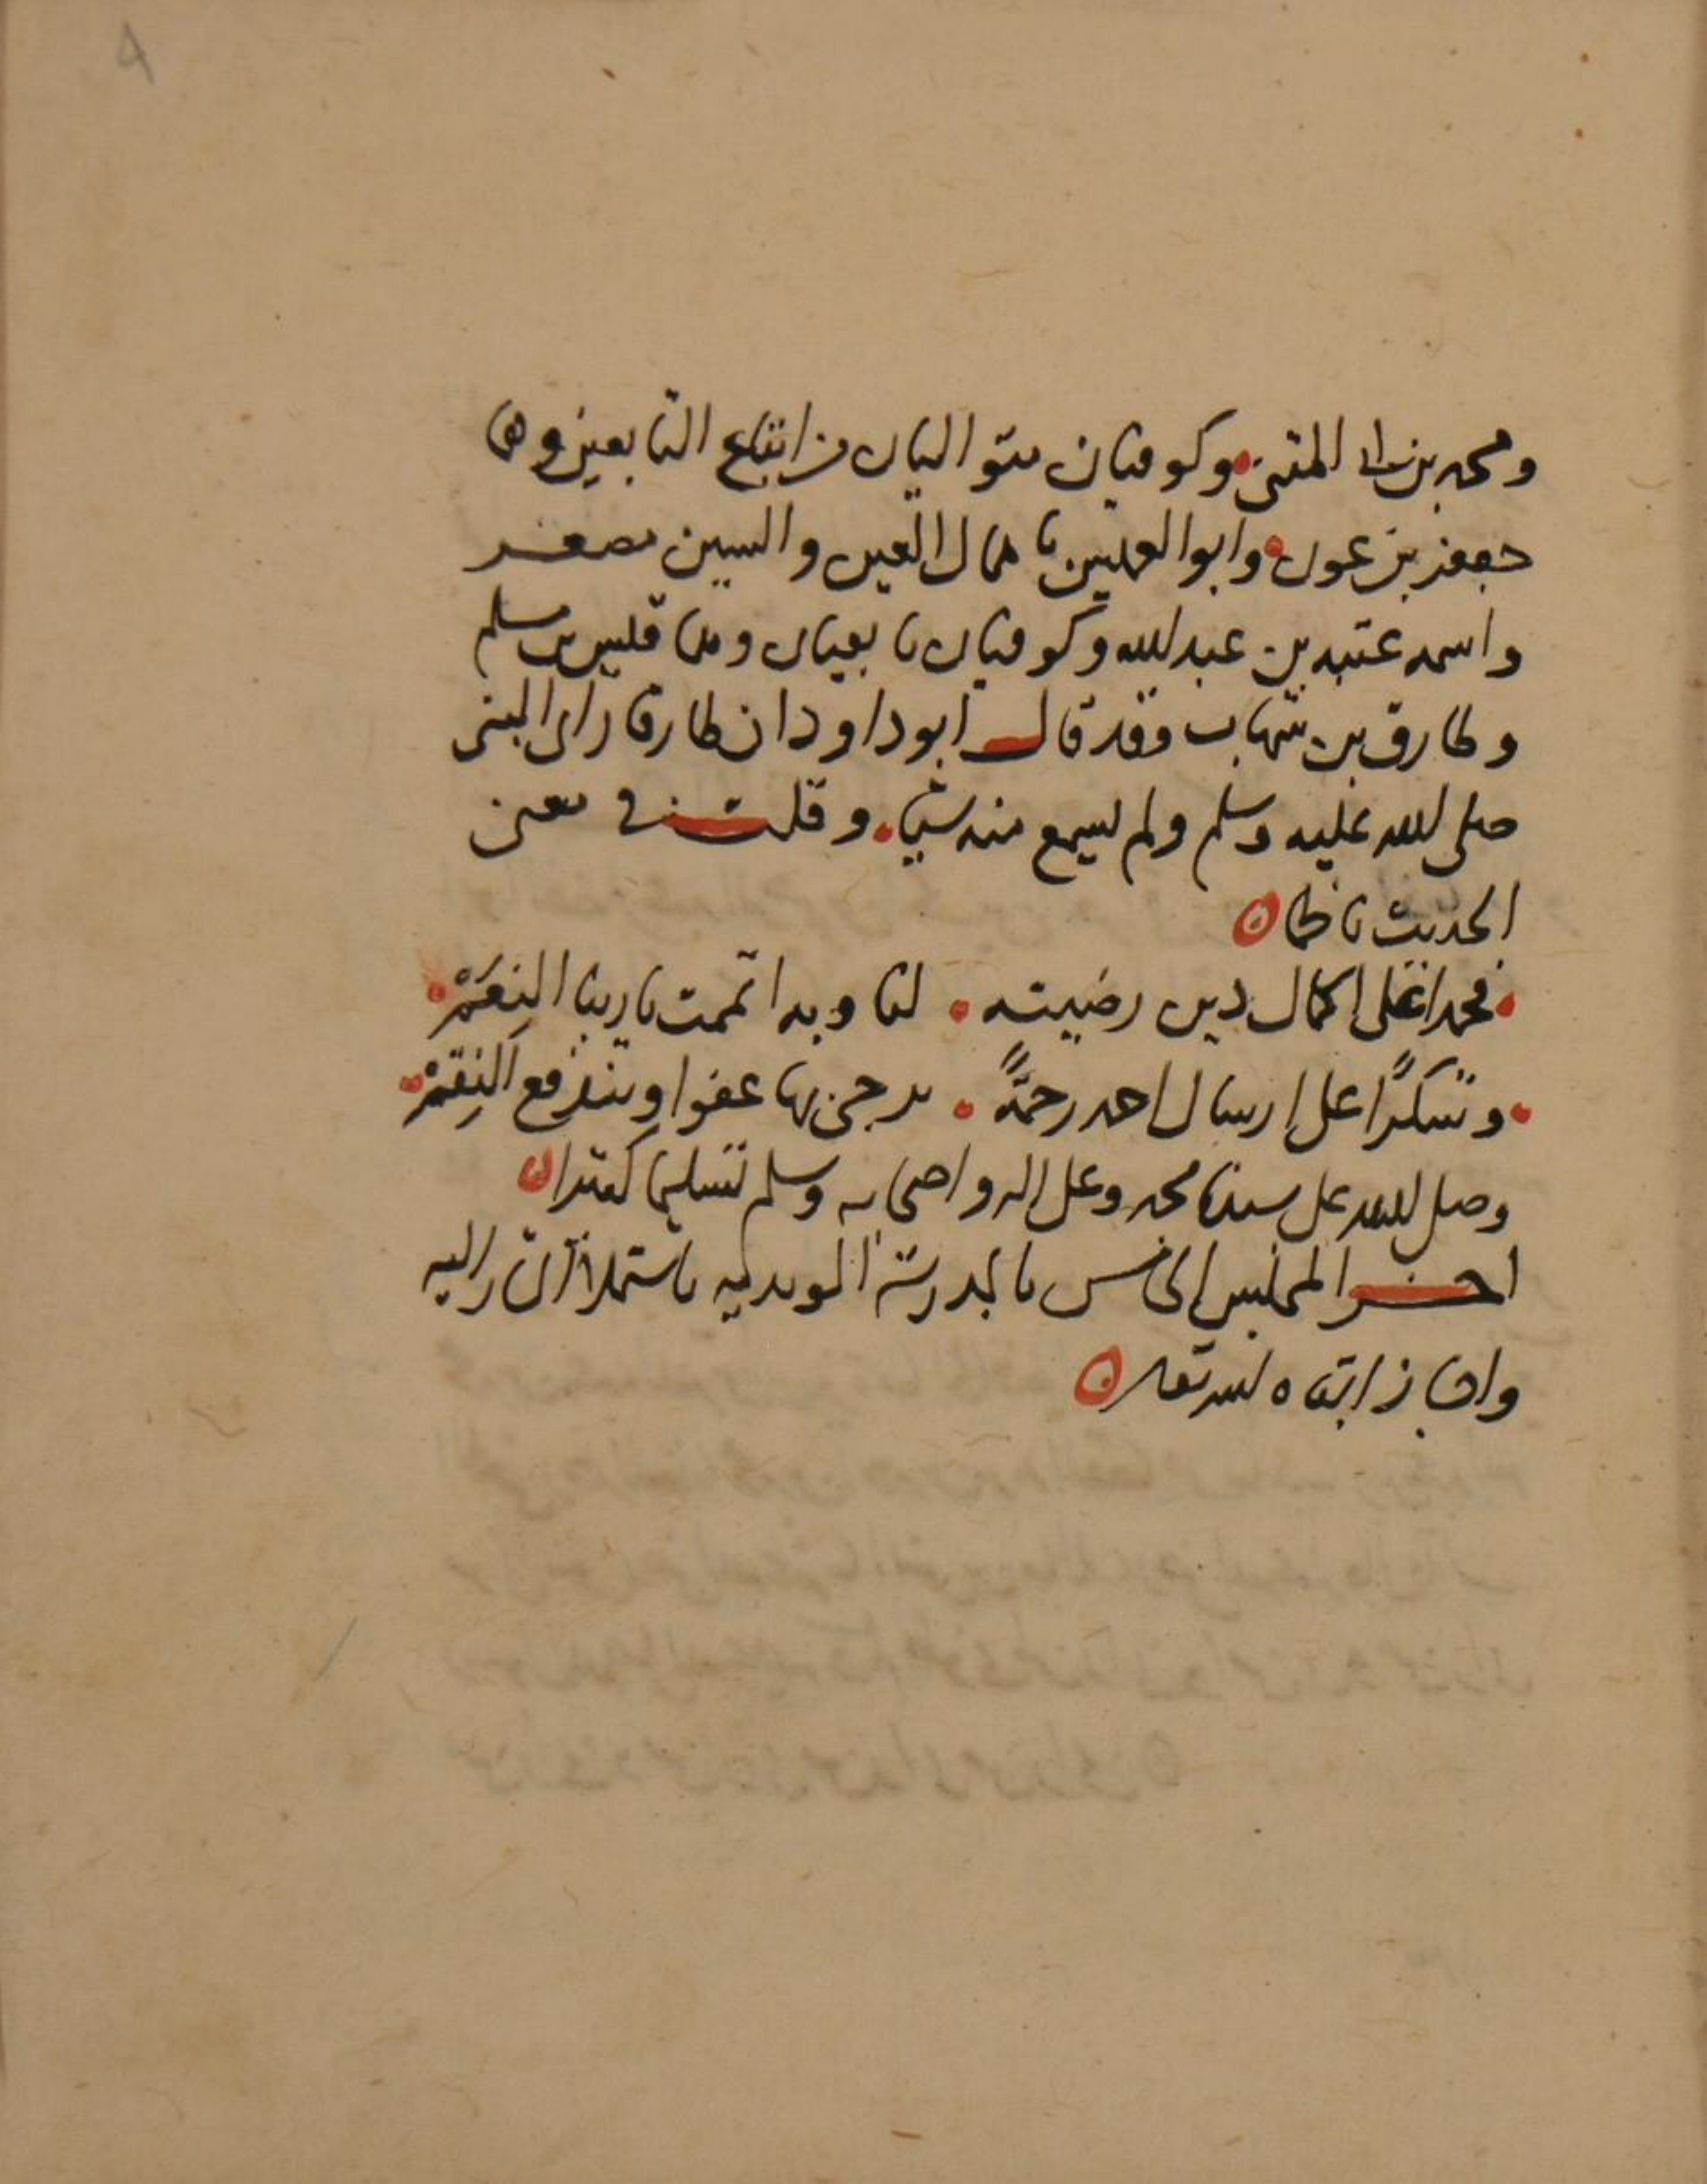 ومحمد بن المثنى وكوفيان متواليان من اتباع التابعين وهما
جعفر بن عون وابو العميس باهمال العين والسين مصغر
واسمه عتبه بن عبد الله وكوفيان تابعيان وهما قيس بن مسلم
وطارق بن شهاب وقد قال ابو داود ان طارقا راى النبى
صلى الله عليه وسلم ولم يسمع منه شيا وقلت في معنى
الحديث ناظما
فحمدا على اكمال دين رضيته لنا وبه اتممت يا ربنا النِعَمْ
وشكرًا على ارسال احمد رحمةً نرجى بها عفوا وتندفع النِقَمْ
وصلى الله على سيدنا محمد وعلى اله واصحابه وسلم تسليما كثيرا
اخر المجلس الخامس بالمدرسة المويديه باستملا
واجاز ابقاه الله تعالى